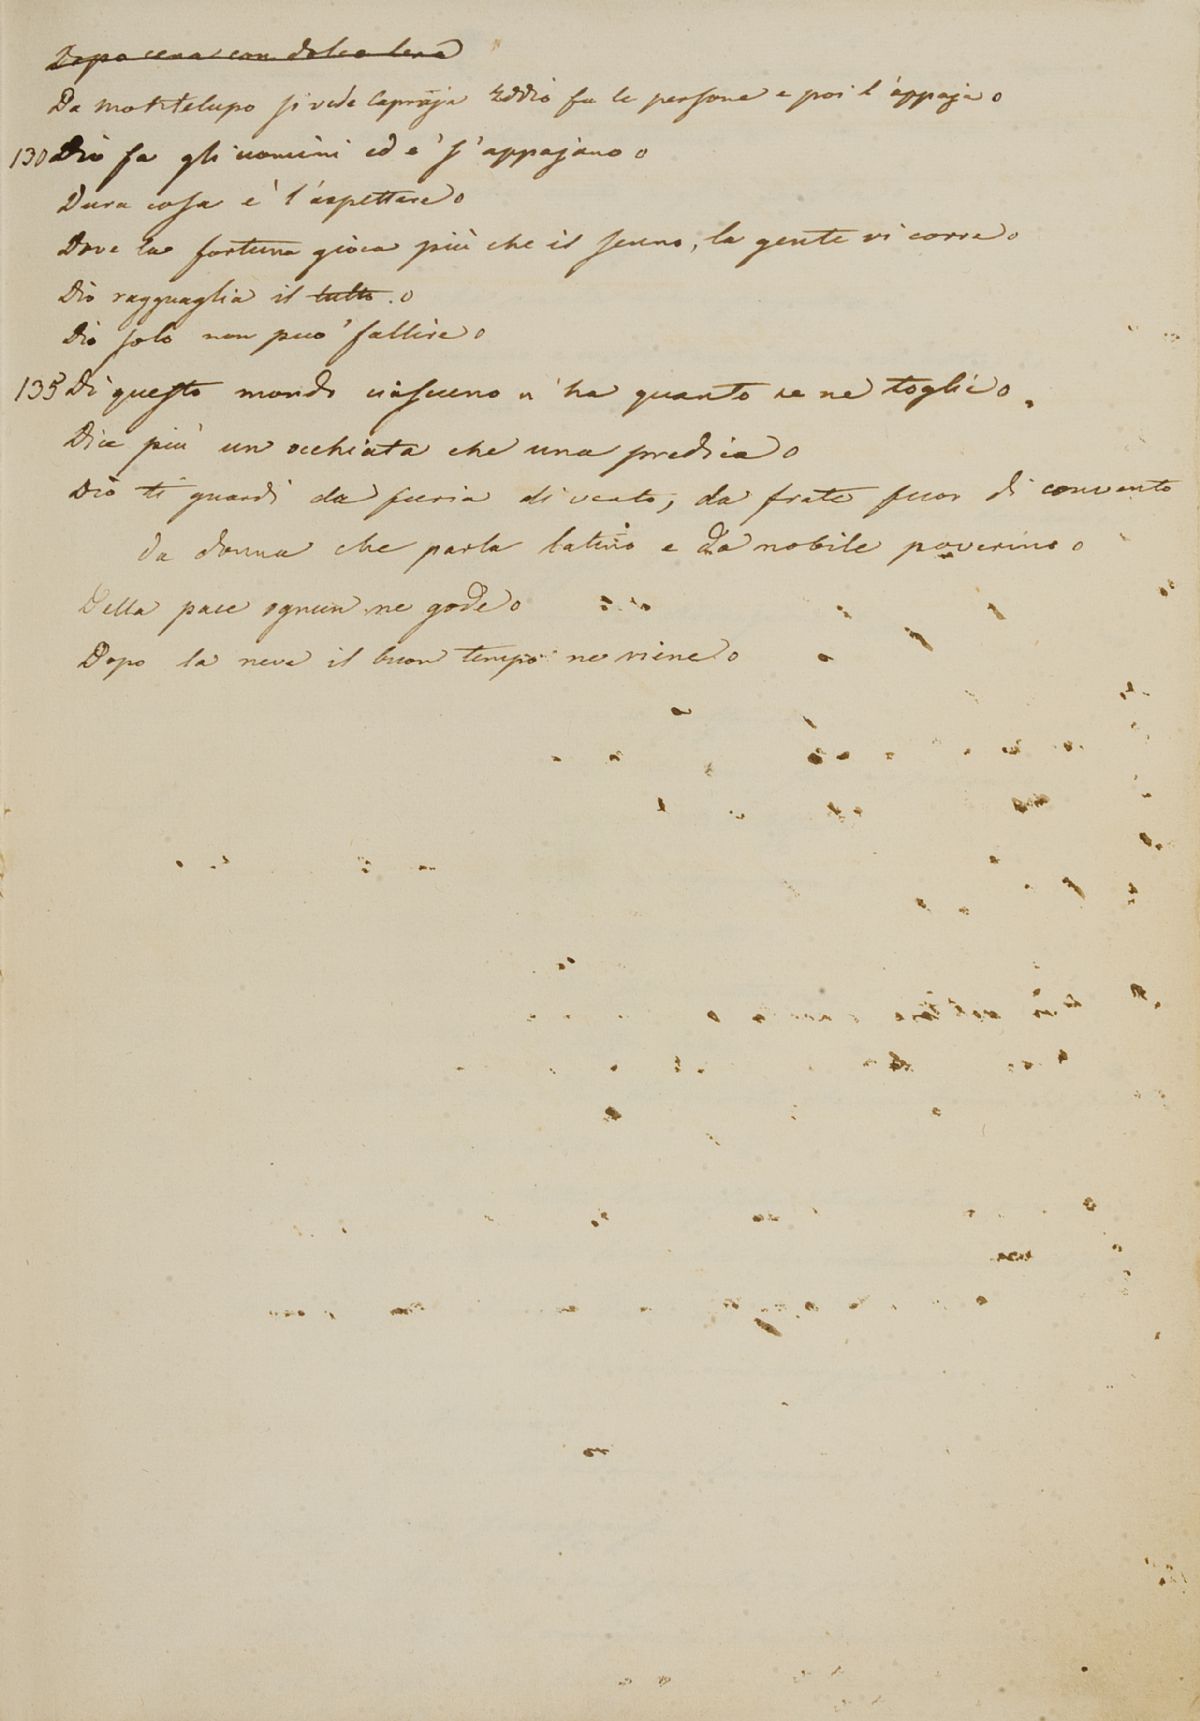 Dopo cena con dolce lena
Da Montelupo si vede Capraja Eddio fa le persone e poi l'appaja o
130 Dio fa gli uomini ed e' s'appajano o
Dura cosa e' l'aspettare o
Dove la fortuna gioca più che il senno, la gente vi corre o
Dio ragguaglia il tutto. o
Dio solo non puo' fallire o
135 Di questo mondo ciascuno n'ha quanto se ne toglie o.
Dice piu' un occhiata che una predica o
Dio ti guardi da furia di vento, da frate fuor di convento
da donna che parla latino e da nobile poverino o
Della pace ognun ne gode o
Dopo la neve il buon tempo ne viene o